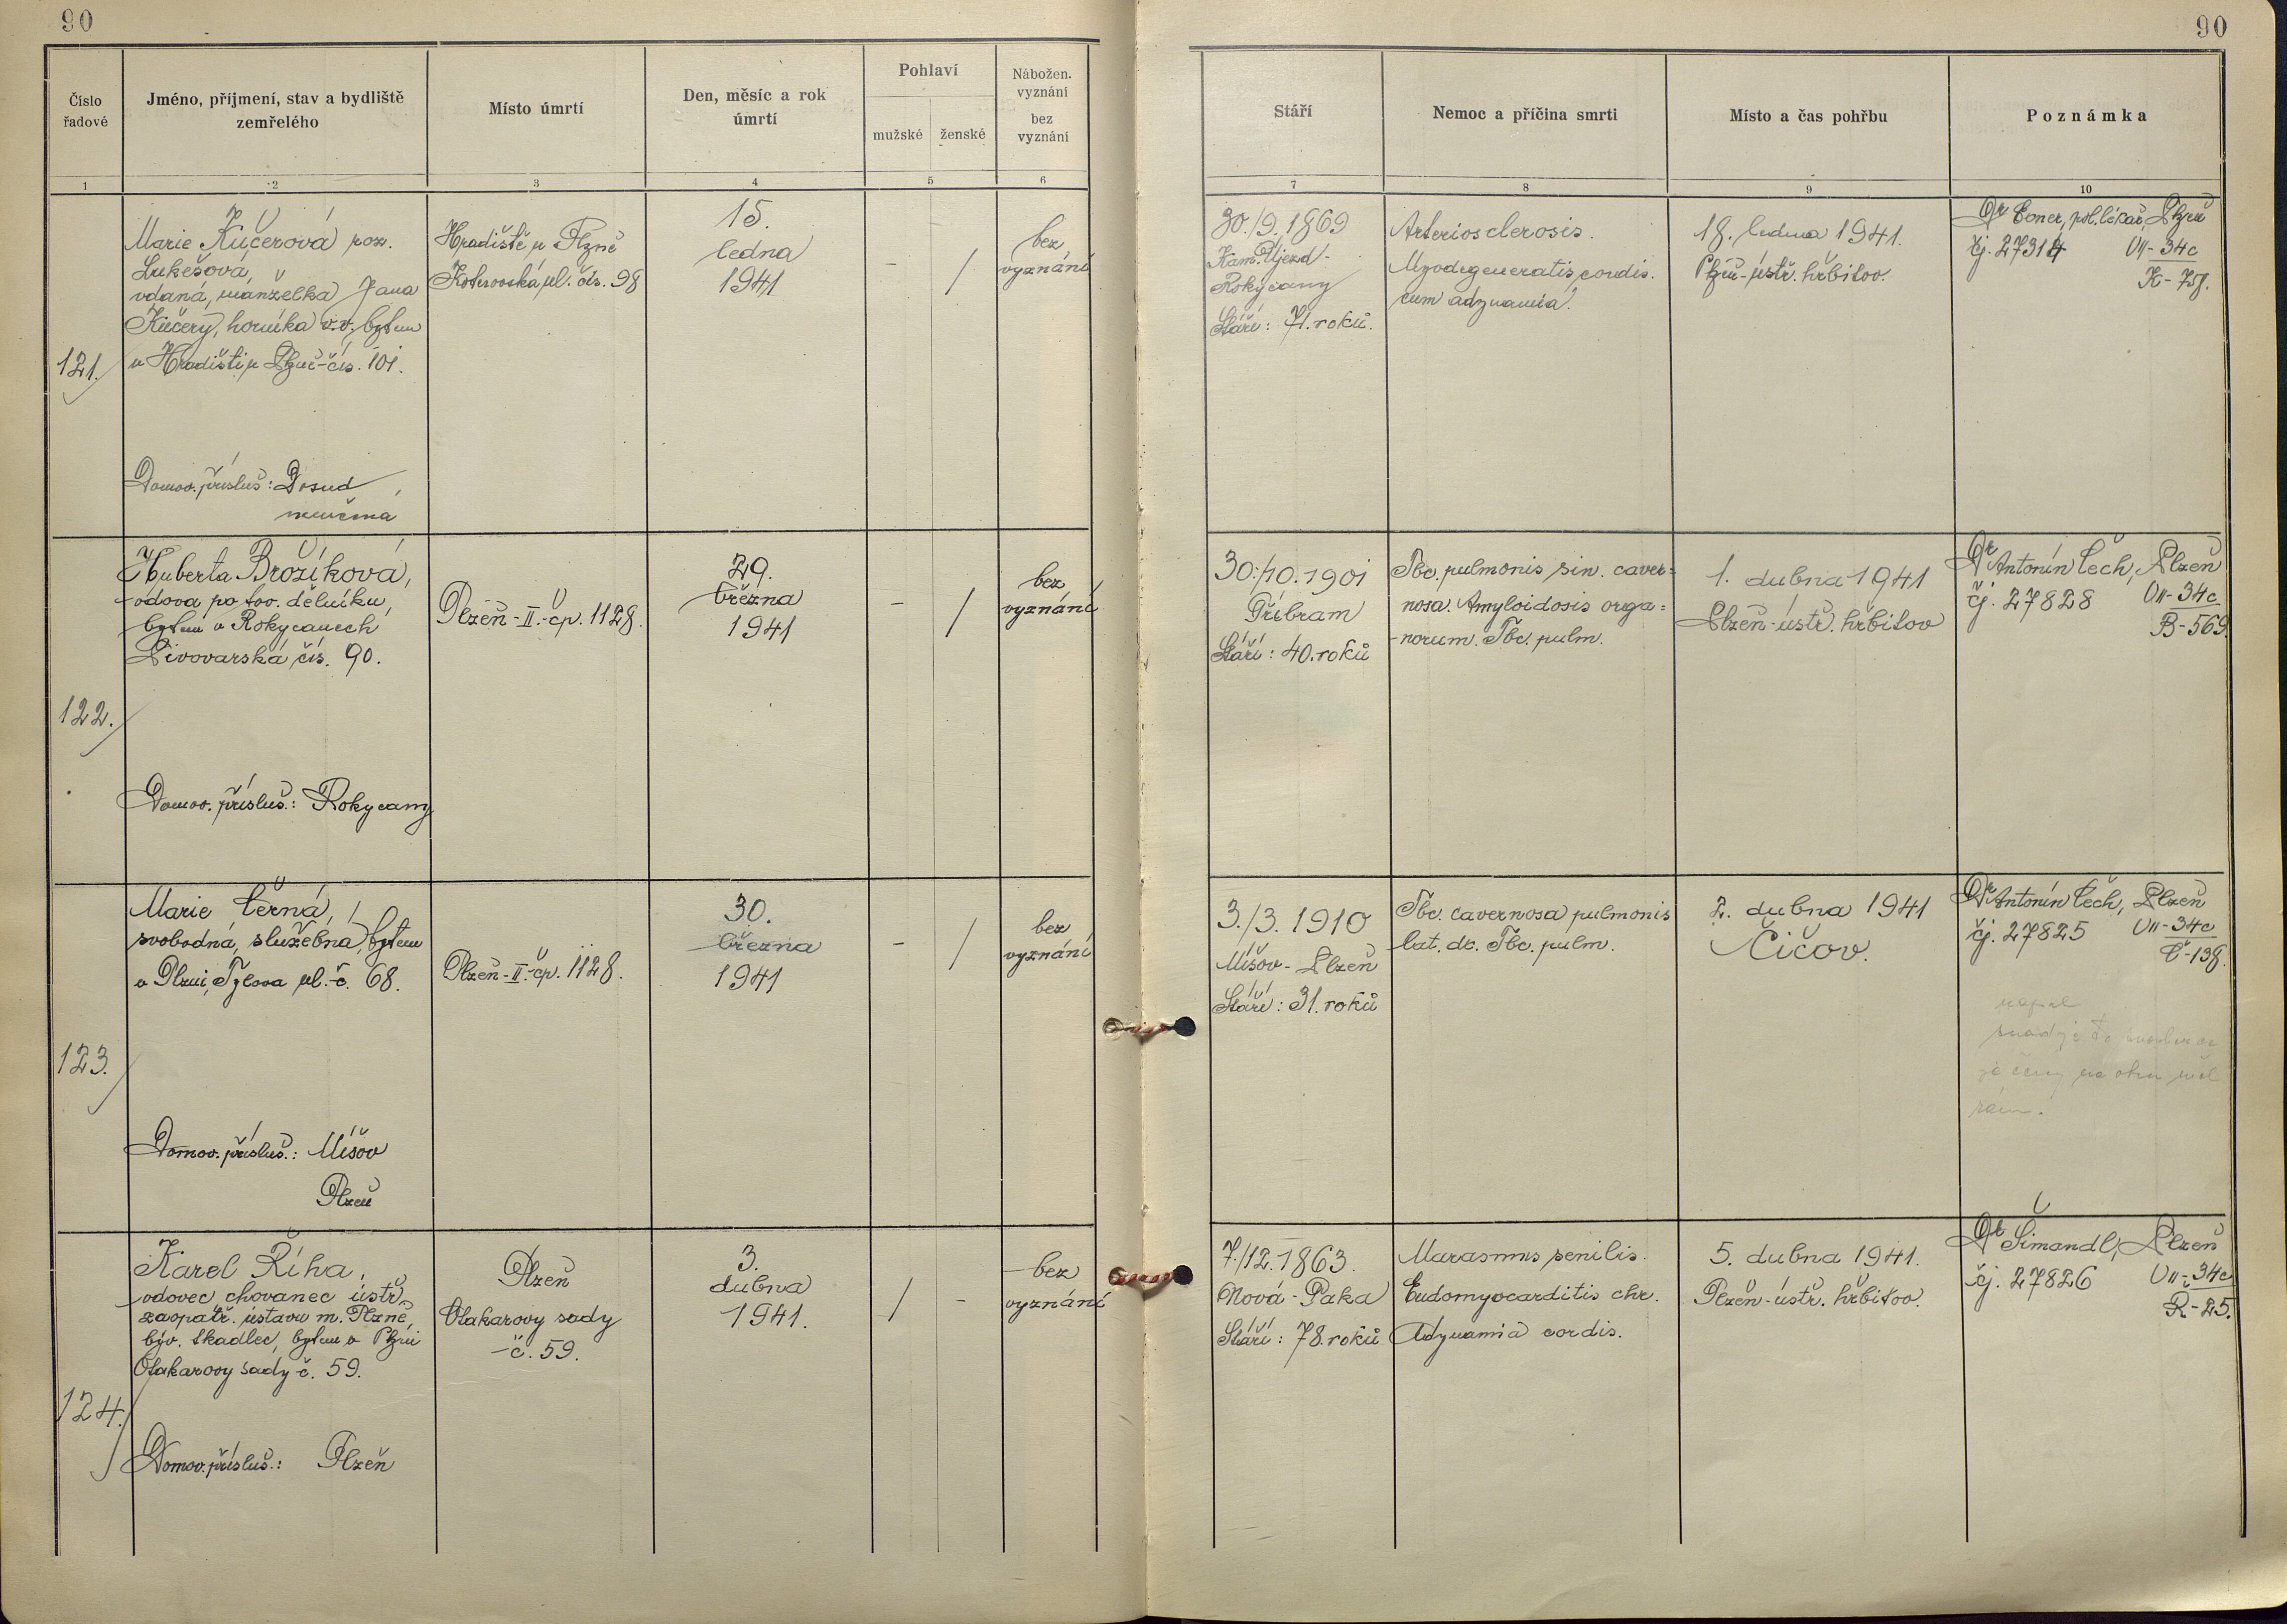 90
90
Číslo řadové
Jméno, příjmení, stav a bydliště zemřelého
Místo úmrtí
Den, měsíc a rok úmrtí
Pohlaví
mužské
ženské
Nábožen. vyznání
bez vyznání
Stáří
Nemoc a příčina smrti
Místo a čas pohřbu
Poznámka
1
2
3
4
5
6
7
8
9
10
121.
Marie Kučerová roz.
Lukešová,
vdaná, manželka Jana
Kučery, horníka v.v., bytem
v Hradišti u Plzně čís. 101.
Domov. přísluš: Dosud
neurčená
Hradiště u Plzně
Koterovská ul. čís. 98
15.
ledna
1941
-
/
bez
vyznání
30./9.1869
Kam. Újezd -
Rokycany
Stáří: 71. roků.
Arteriosclerosis.
Myodegeneratis cordis.
cum adynamia.
18. ledna 1941.
Plzeň-ústř. hřbitov.
Dr Ebner, pol. lékař, Plzeň
čj. 27314 VII-34c
K-78.
122.
Huberta Brožíková,
vdova po tov. dělníku,
bytem v Rokycanech
Pivovarská čís. 90.
Domov. přísluš.: Rokycany
Plzeň-II.-čp. 1128.
29.
března
1941
-
/
bez
vyznání
30./10.1901
Příbram
Stáří: 40. roků
Tbc. pulmonis sin. caver=
nosa. Amyloidosis orga=
-norum. Tbc. pulm.
1. dubna 1941
Plzeň-ústř. hřbitov
Dr Antonín Čech, Plzeň
čj. 27828 VII-34c
B-569.
123.
Marie Černá,
svobodná, služebná, bytem
v Plzni, Tylova ul. č. 68.
Domov. přísluš.: Míšov
Plzeň
Plzeň-II.-čp. 1128.
30.
března
1941
-
/
bez
vyznání
3./3. 1910
Míšov - Plzeň
Stáří: 31. roků
Tbc. cavernosa pulmonis
lat. dx. Tbc. pulm.
2. dubna 1941
Čičov.
Dr Antonín Čech, Plzeň
čj. 27825 VII-34c
Č-138.
124.
Karel Říha,
vdovec chovanec ústř.
zaopatř. ústavu m. Plzně,
býv. tkadlec, bytem v Plzni
Otakarovy sady č. 59.
Domov. přísluš.: Plzeň
Plzeň
Otakarovy sady
-č. 59.
3.
dubna
1941.
/
-
bez
vyznání
7./12.1863.
Nová-Paka
Stáří: 78. roků
Marasmus senilis.
Endomyocarditis chr.
Adynamia cordis.
5. dubna 1941.
Plzeň-ústř. hřbitov.
Dr Šimandl, Plzeň
čj. 27826 VII-34c
Ř-25.